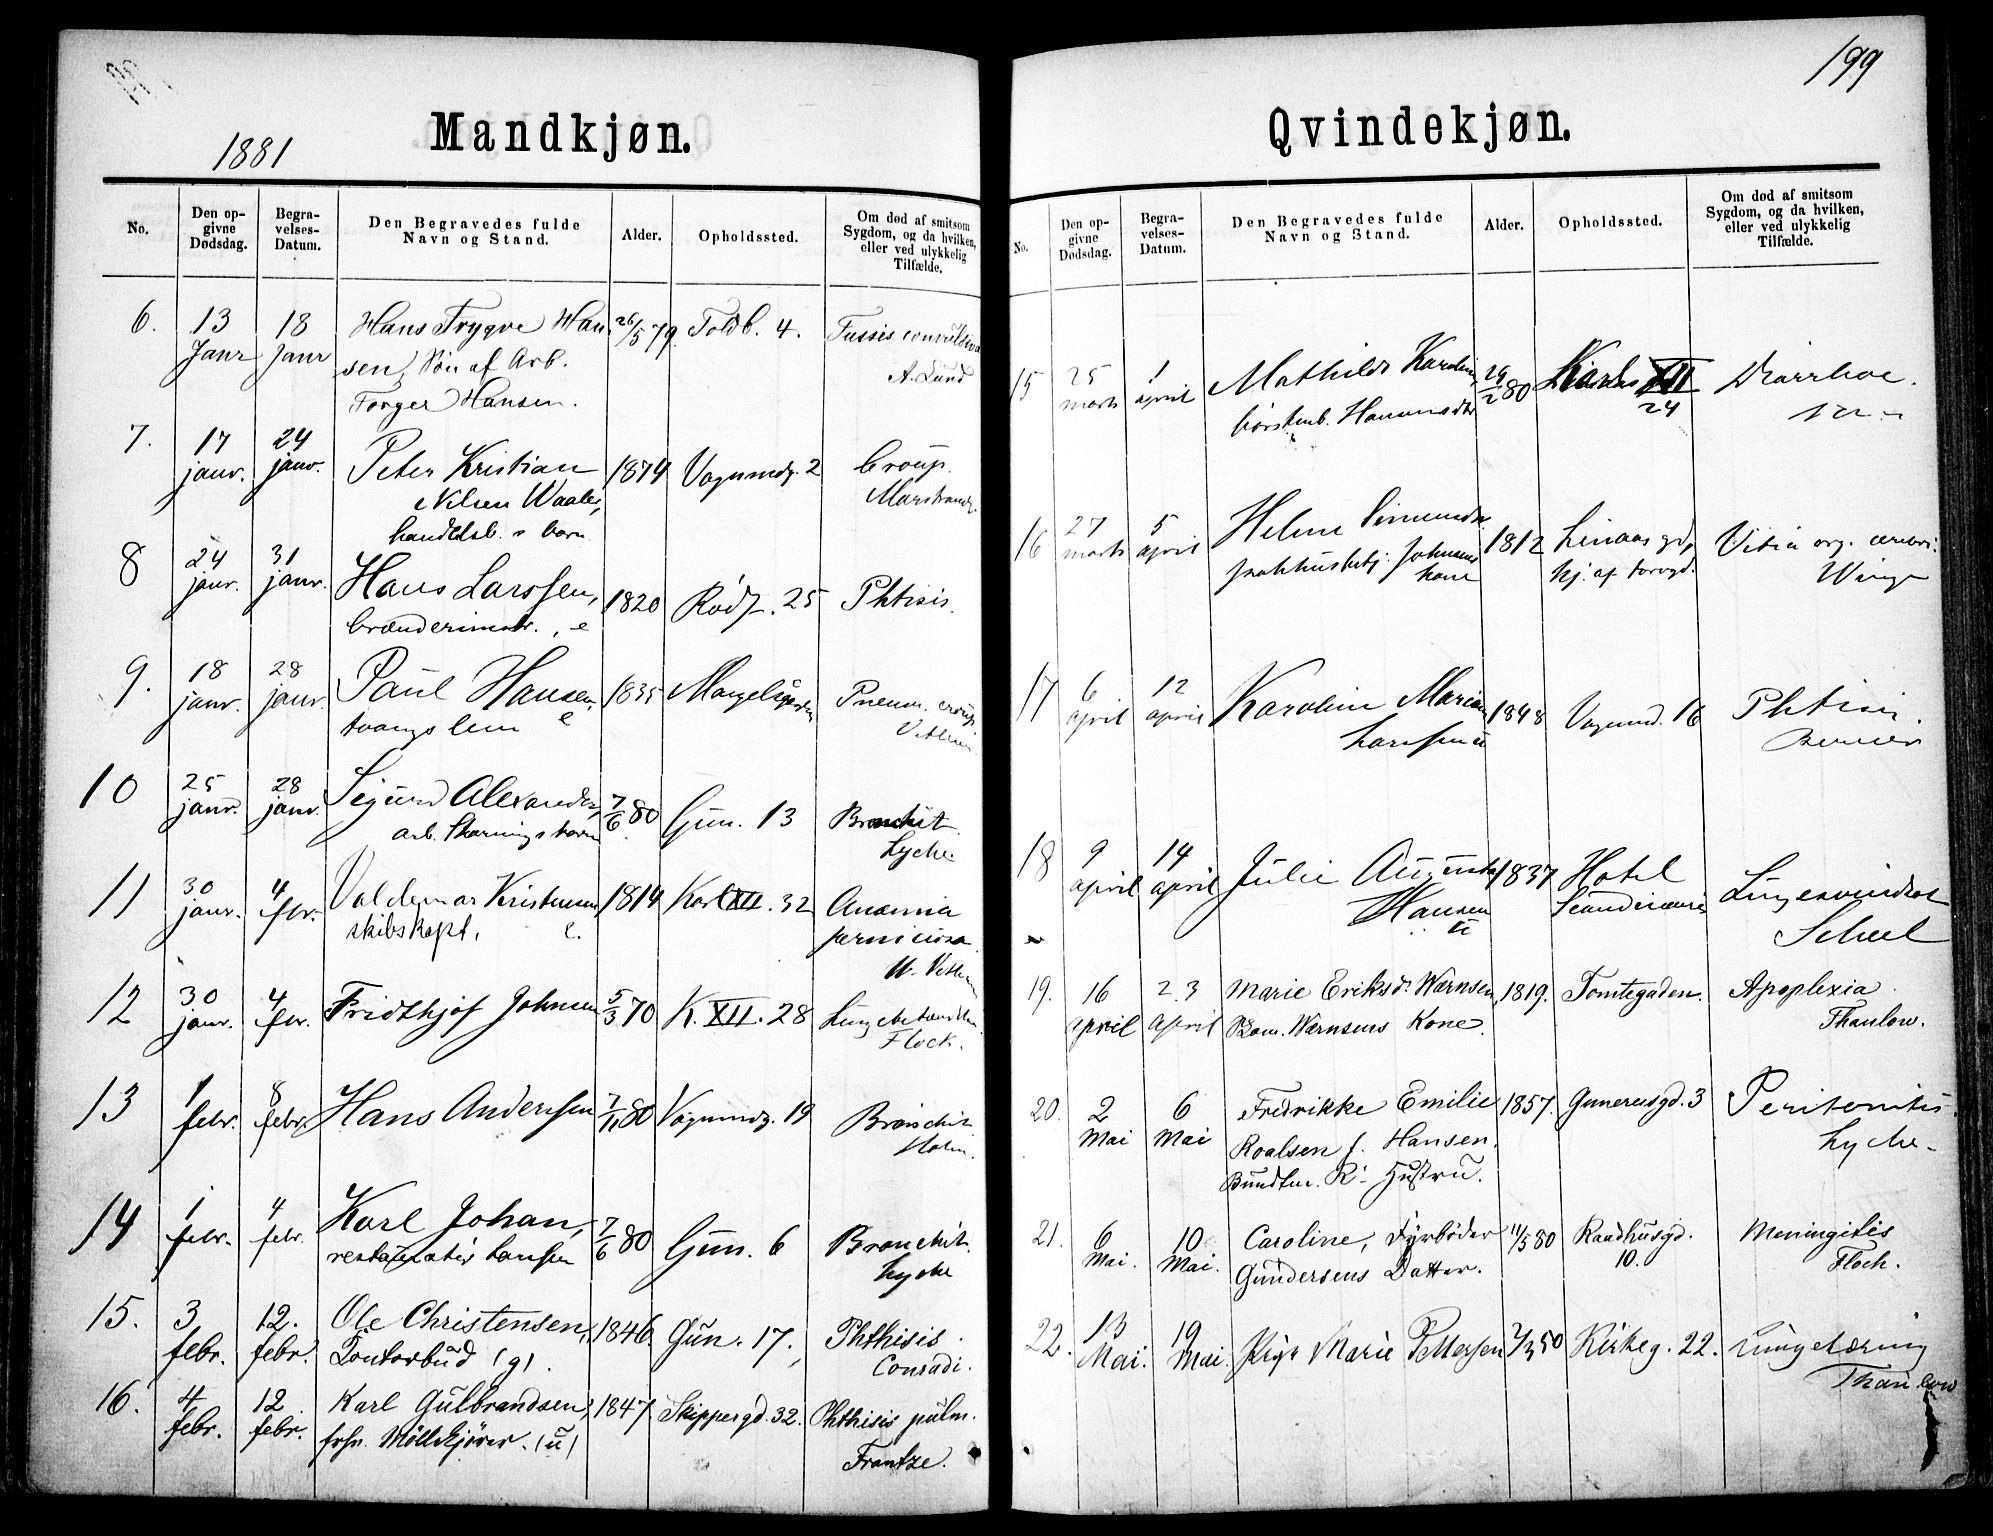 199
1881
Mandkjøn.
No.
Den opgivne Dødsdag.
Begravelses-Datum.
Den Begravedes fulde Navn og Stand.
Alder.
Opholdssted.
Om død af smitsom Sygdom, og da hvilken, eller ved ulykkelig Tilfælde.
6. 13 Janr 18 Janr Hans Trygve Han- 26/5 79. Toldb. 4. Tussis convulsiva
sen, Søn af Arb. A. Lund
Torger Hansen.
7. 17 janr. 24 janr. Peter Kristian 1874 Vognmdg. 2 Croup.
Nilsen Waaler, Marstrand
handelsb. s barn
8 24 janr. 31 janr. Hans Larssen, 1820 Rødf. 25 Phtisis.
brænderimstr., e
9. 18 janr. 28 janr. Paul Hansen, 1835 Mangelsgaarden Pneum. croup.
tvangslem e
10 25 janr. 28 janr. Sigurd Alexander, 7/6 80 Gun. 13 Bronchit.
arb. barn Lyche
11 30 janr. 4 febr. Valdemar Kristensen 1814 Karl XII. 32 Anæmia
skibskapt. e. perniciosa
12 30 janr. 4 febr. Fridthjof Johnsen 5/3 70 K. XII. 28 Lungebetændelse
Flock.
13 1 febr. 8 febr. Hans Anderssen 7/11 80 Vognmdg. 19 Bronchit
Holm.
14 1 febr. 4 febr. Karl Johan, 7/6 80 Gun. 6 Bronchit.
restauratør Larssen Lyche
15. 3 febr. 12. febr. Ole Christensen, 1846. Gun. 17. Phthisis.
Contorbud (g). Conradi.
16. 4 febr. 12 febr. Karl Gulbrandsen, 1847. Skippergd. 32. Phthisis pulm.
frhn. Møllekjører. (u) Frantze.
Qvindekjøn.
No.
Den opgivne Dødsdag.
Begravelses-Datum.
Den Begravedes fulde Navn og Stand.
Alder.
Opholdssted.
Om død af smitsom Sygdom, og da hvilken, eller ved ulykkelig Tilfælde.
15 25 marts 1 april Mathilde Karoline, 29/2 80 Karls XII Diarrhoe.
børstenb. 24
16 27 marts 5 april Helene 1812 Lenaasgd, Vitia org.
pakhusbetj. Johnsens kone hj. af torvgd. Winge
17 6 april 12 april Karoline Marie 1848 Vognmd. 16 Phtisis.
Larssen u
18 9 april 14 april Julie Augusta 1837 Hotel Lungesvindsot
Hansen u Scandinavie Scheel
19. 16 april 23 April Marie Eriksd. Wærnsen, 1819. Tomtegaden. Apoplexia.
Wærnsens Kone. Thaulow.
20. 2 Mai 6 Mai Fredrikke Emilie 1857. Gunerusgd. 3 Peritonitis.
Roalsen f. Hansen. Lyche
Bundtm. R's Hustru.
21. 6 Mai. 10 Mai. Caroline, Fyrbøder 11/5 80 Raadhusgd. Meningitis
Gundersens Datter. 10. Floch.
22. 13 Mai. 19 Mai. Pige Marie Pettersen 7/3 50 Kirkeg. 22. Lungetæring
Thaulow